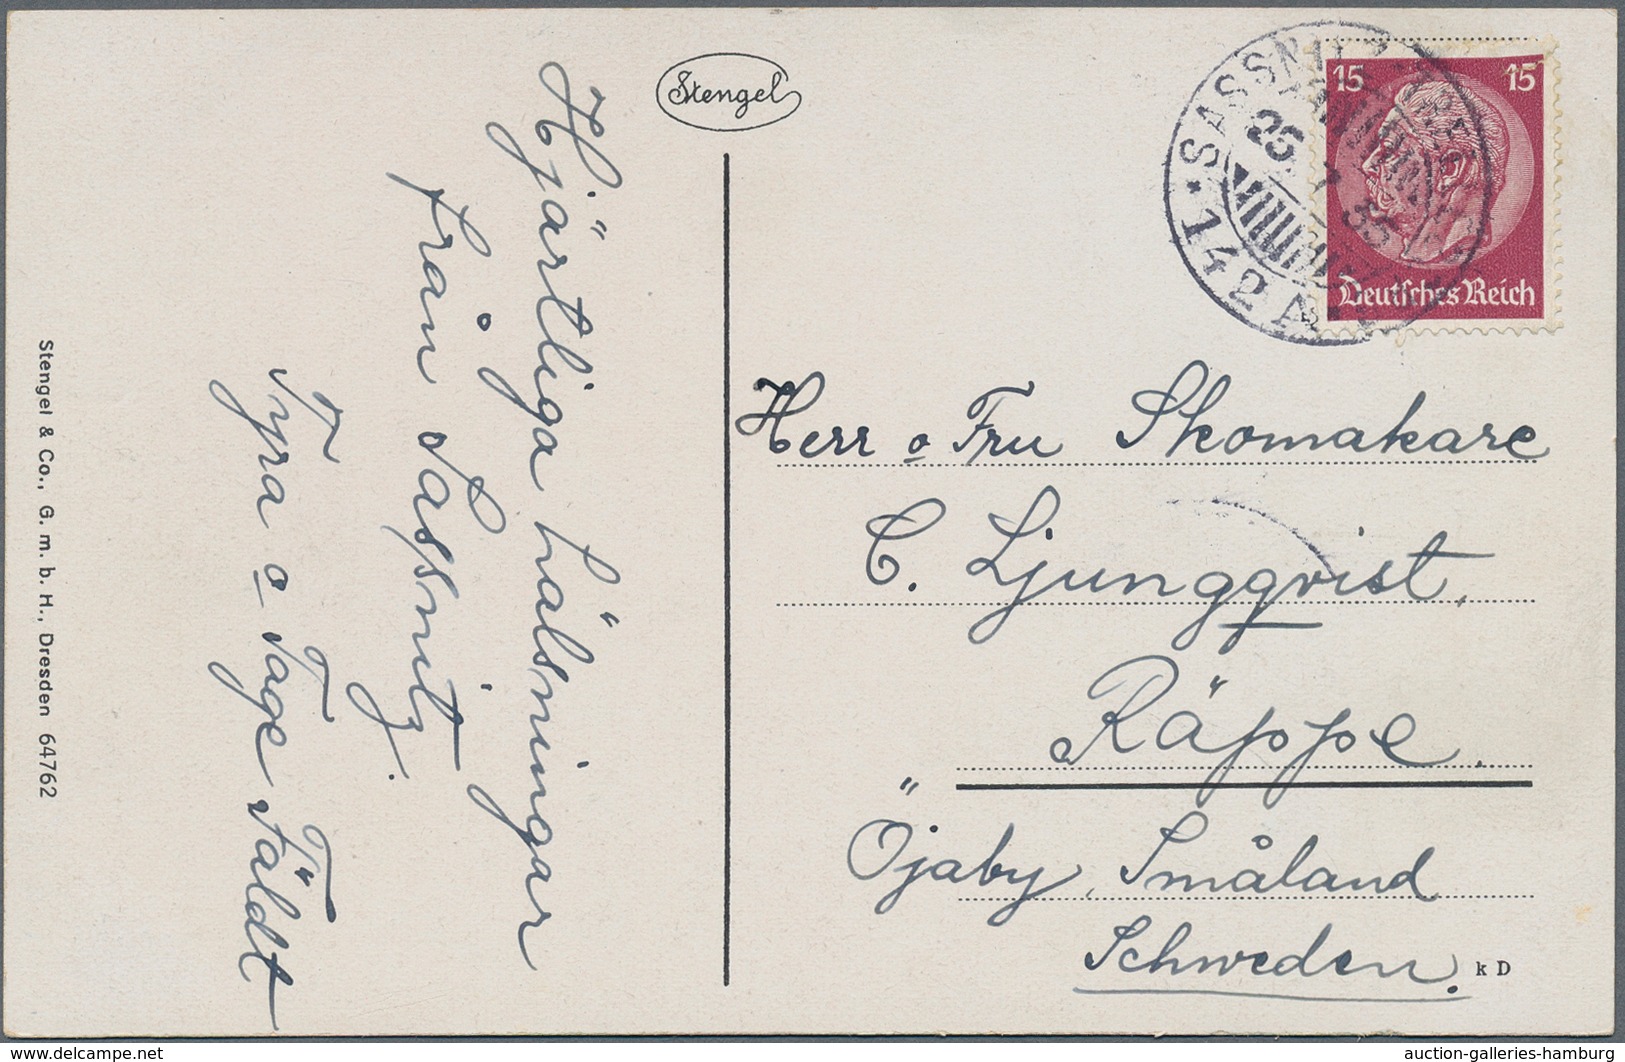 Stengel
Hjärtliga hälsningar
från Sassnitz.
Tyra o Tage Fäldt
Stengel & Co., G. m. b. H., Dresden 64762
15 15
Deutsches Reich
142
Herr o Fru Skomakare
C. Ljungqvist,
Räppe.
Öjaby, Småland
Schweden.
k D
auction-galleries-hamburg
delcampe.net